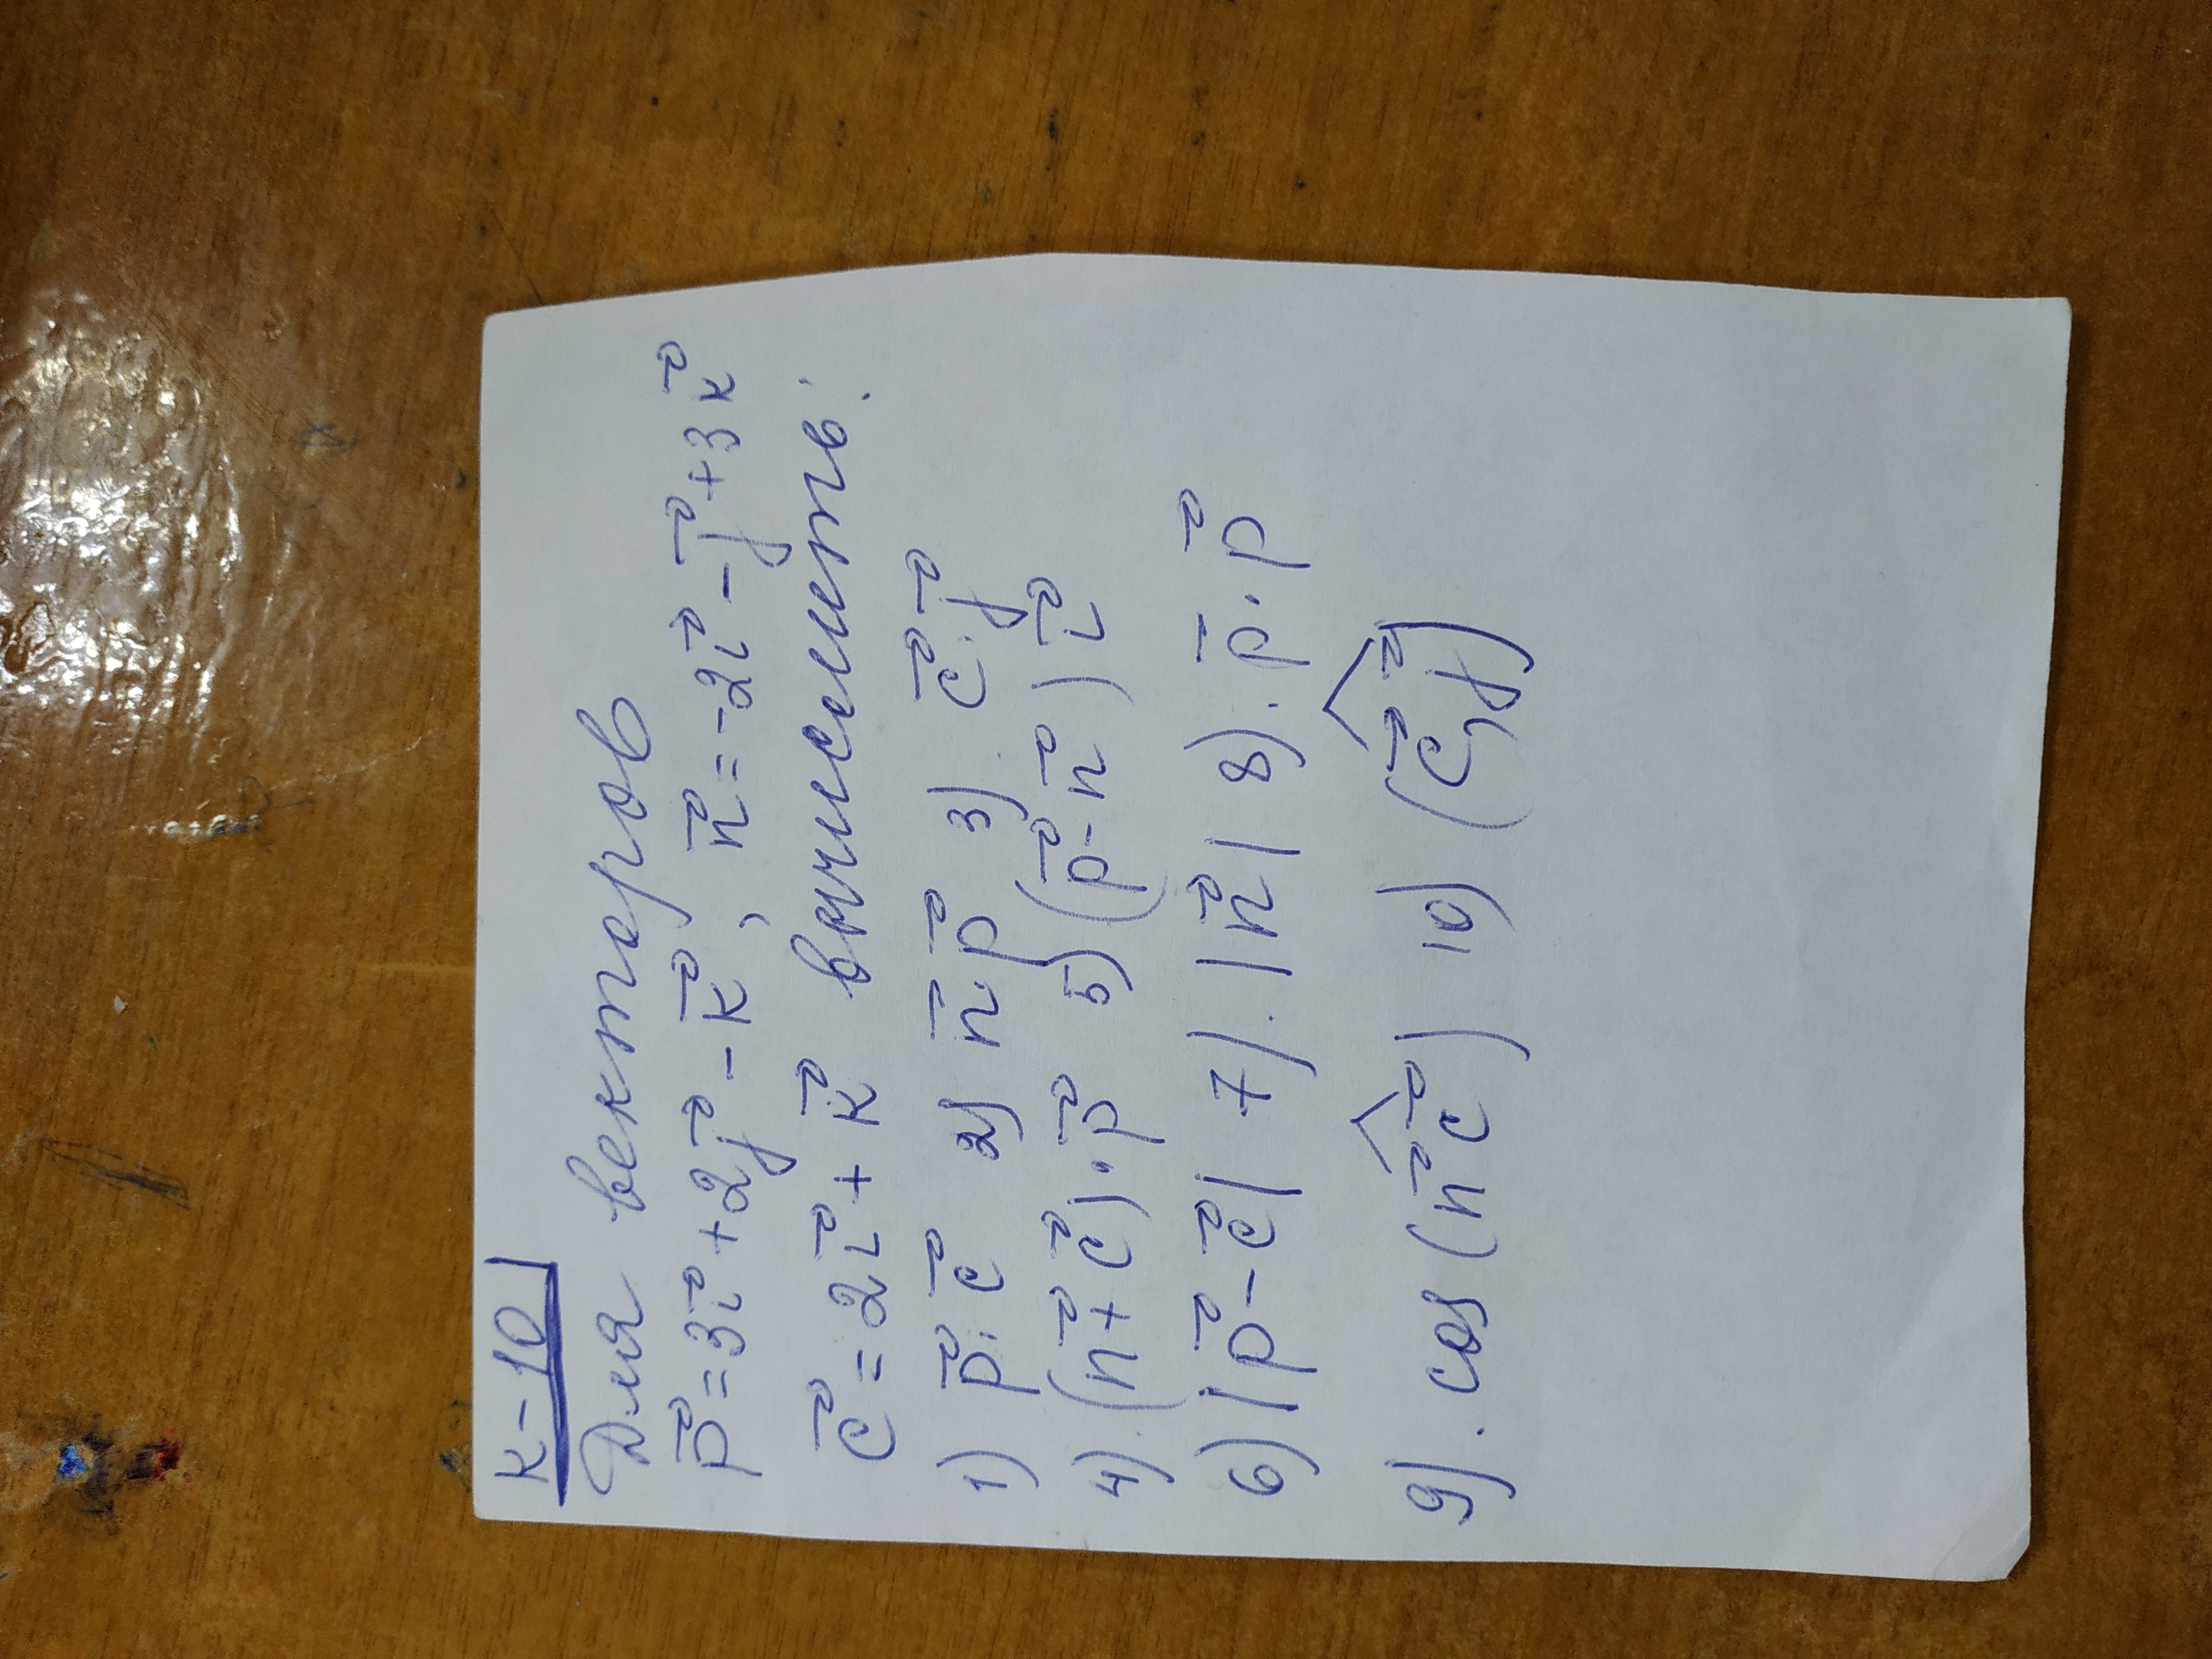 К-10
Для векторов
p⃗ = 3i⃗ + 2j⃗ - k⃗, n⃗ = -2i⃗ - j⃗ + 3k⃗
c⃗ = 2i⃗ + k⃗ вычислить:
1) p⃗·c⃗ 2) n⃗·p⃗ 3). c⃗·j⃗
4).(n⃗+c⃗)·p⃗ 5) (p⃗-n⃗)i⃗
6) |p⃗-c⃗| 7). |n⃗| 8). p⃗·p⃗
9). cos (n⃗ ^ c⃗) 10) (c⃗ ^, j⃗)